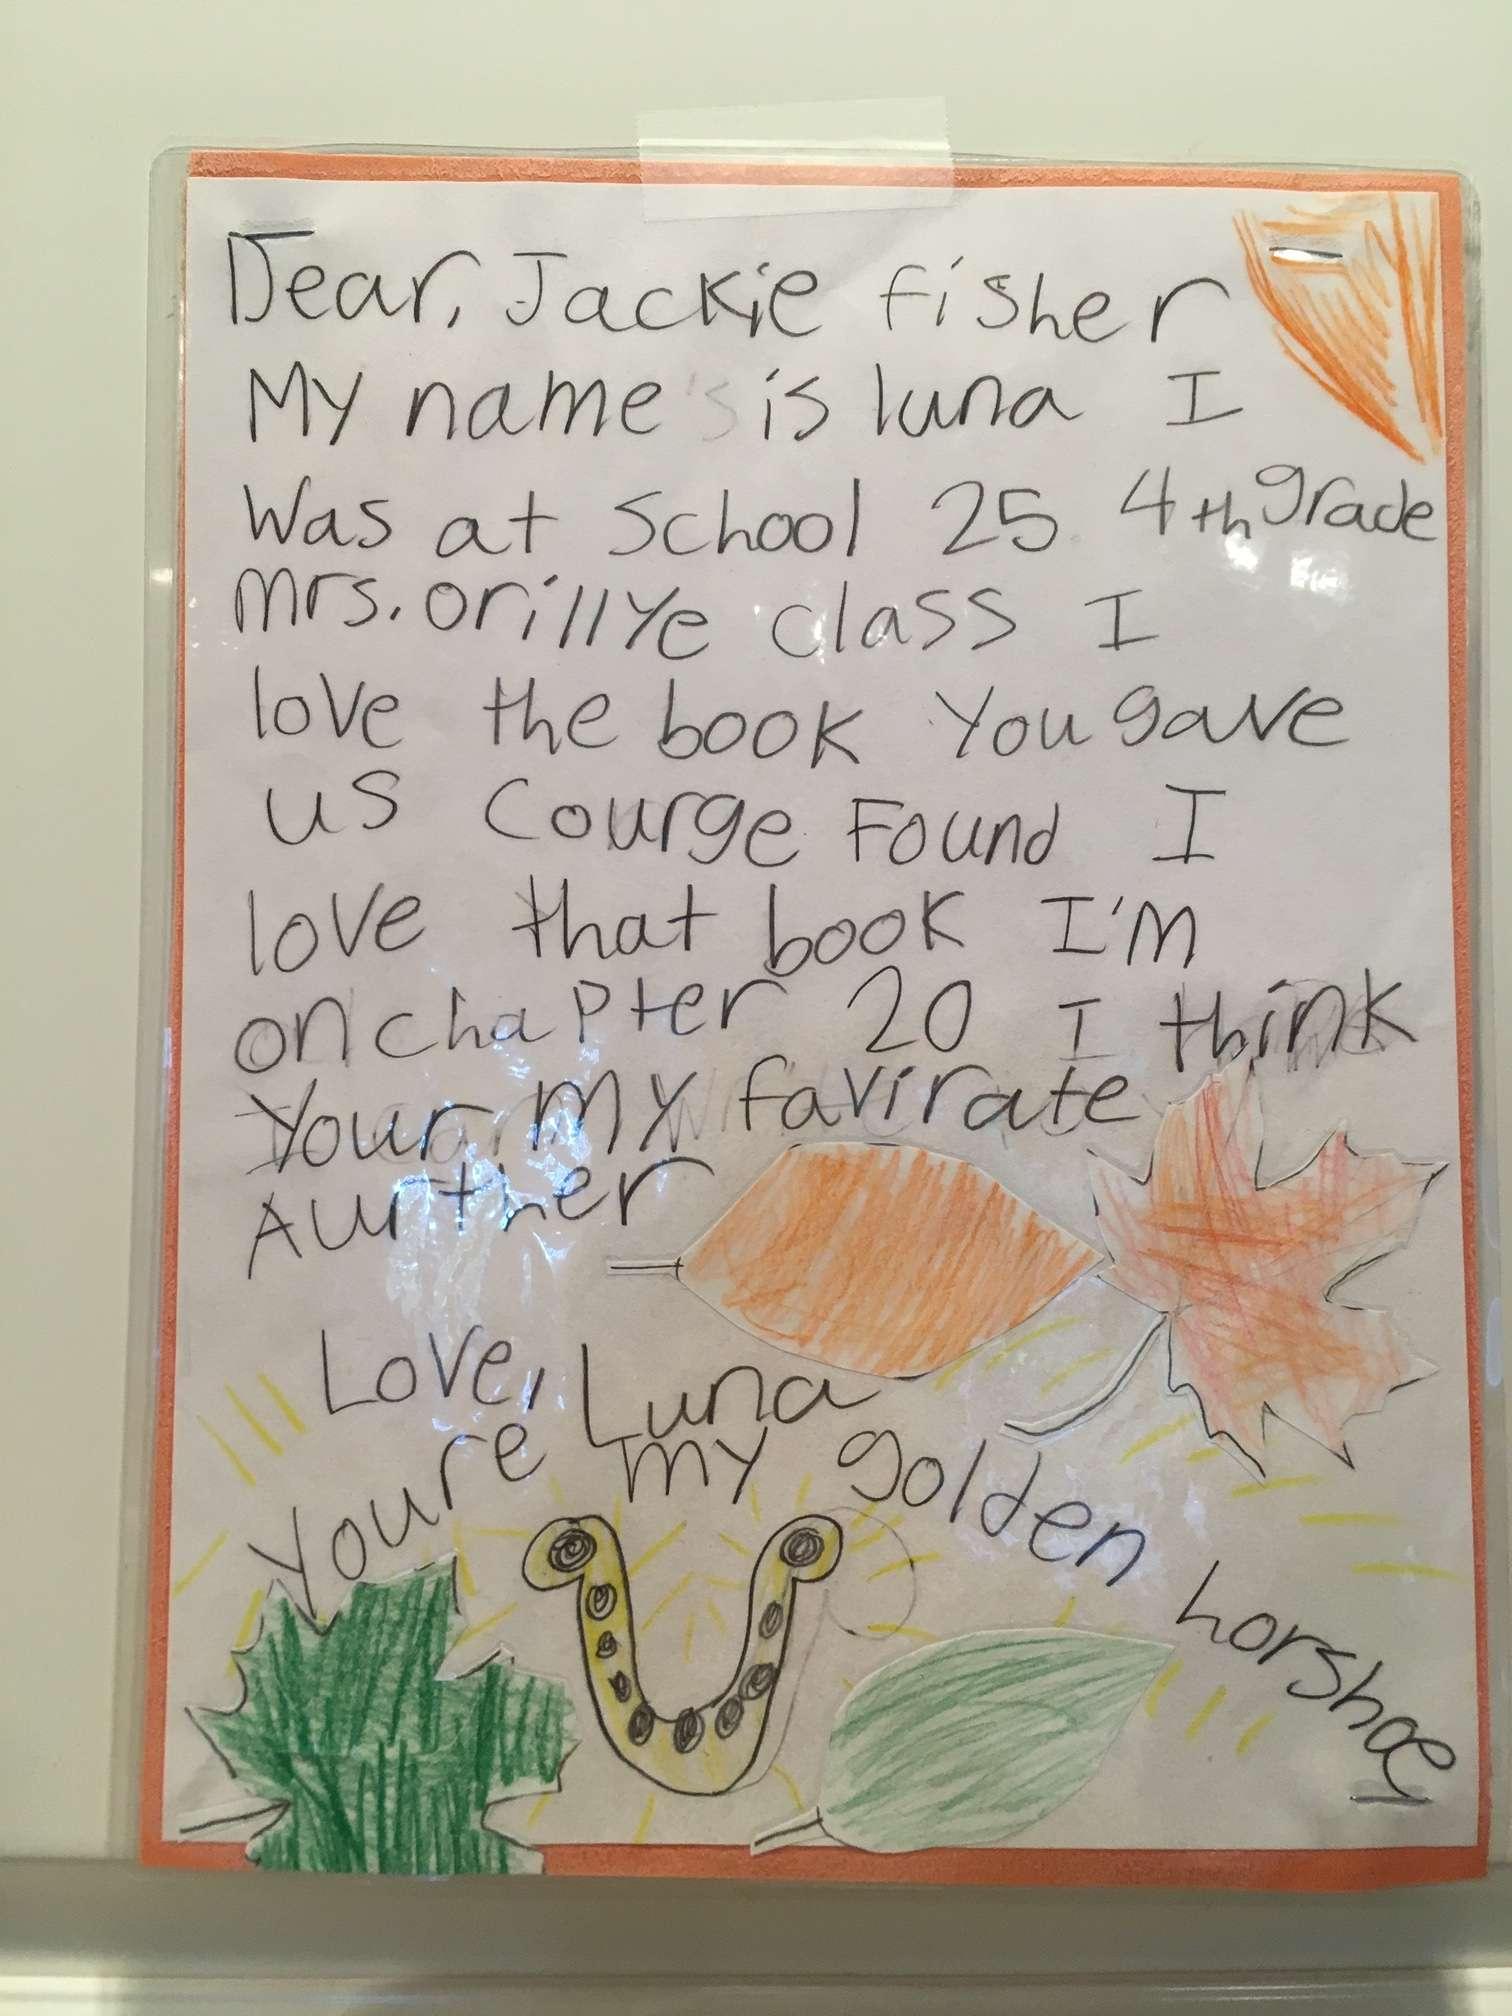 Dear, Jackie fisher
My name is luna I
was at school 25 4th grade
mrs. orillye class I
love the book you gave
us Courge Found I
love that book I'm
on chapter 20 I think
your my favirate
Aurther
Love, Luna
youre my golden horshoe